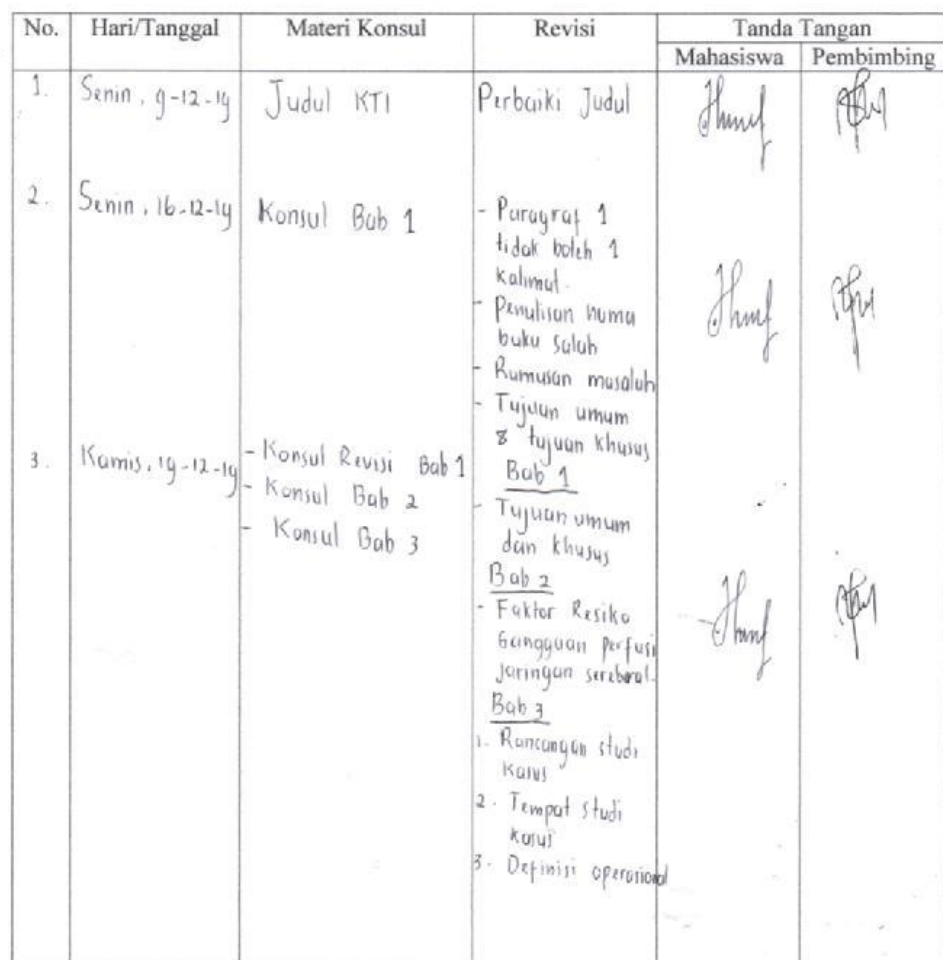 No. Hari/Tanggal Materi Konsul Revisi Tanda Tangan
Mahasiswa Pembimbing
1. Senin, 9-12-19 Judul KTI Perbaiki Judul
2. Senin, 16-12-19 Konsul Bab 1 - Paragraf 1
tidak boleh 1
kalimat.
- Penulisan nama
buku salah
- Rumusan masalah
- Tujuan umum
& tujuan khusus
3. Kamis, 19-12-19 - Konsul Revisi Bab 1
- Konsul Bab 2
- Konsul Bab 3
Bab 1
- Tujuan umum
dan khusus
Bab 2
- Faktor Resiko
Gangguan perfusi
jaringan serebral.
Bab 3
1. Rancangan studi
kasus
2. Tempat studi
kasus
3. Definisi operasional